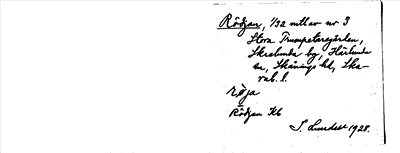 Rödjan, 1/32 mtl av nr 3
Stora Trumpetaregården,
Skralunda by, Härlunda
sn, Skånings hd, Ska-
rab. l.
röja
Rödjan Kb
S. Lundst 1928.